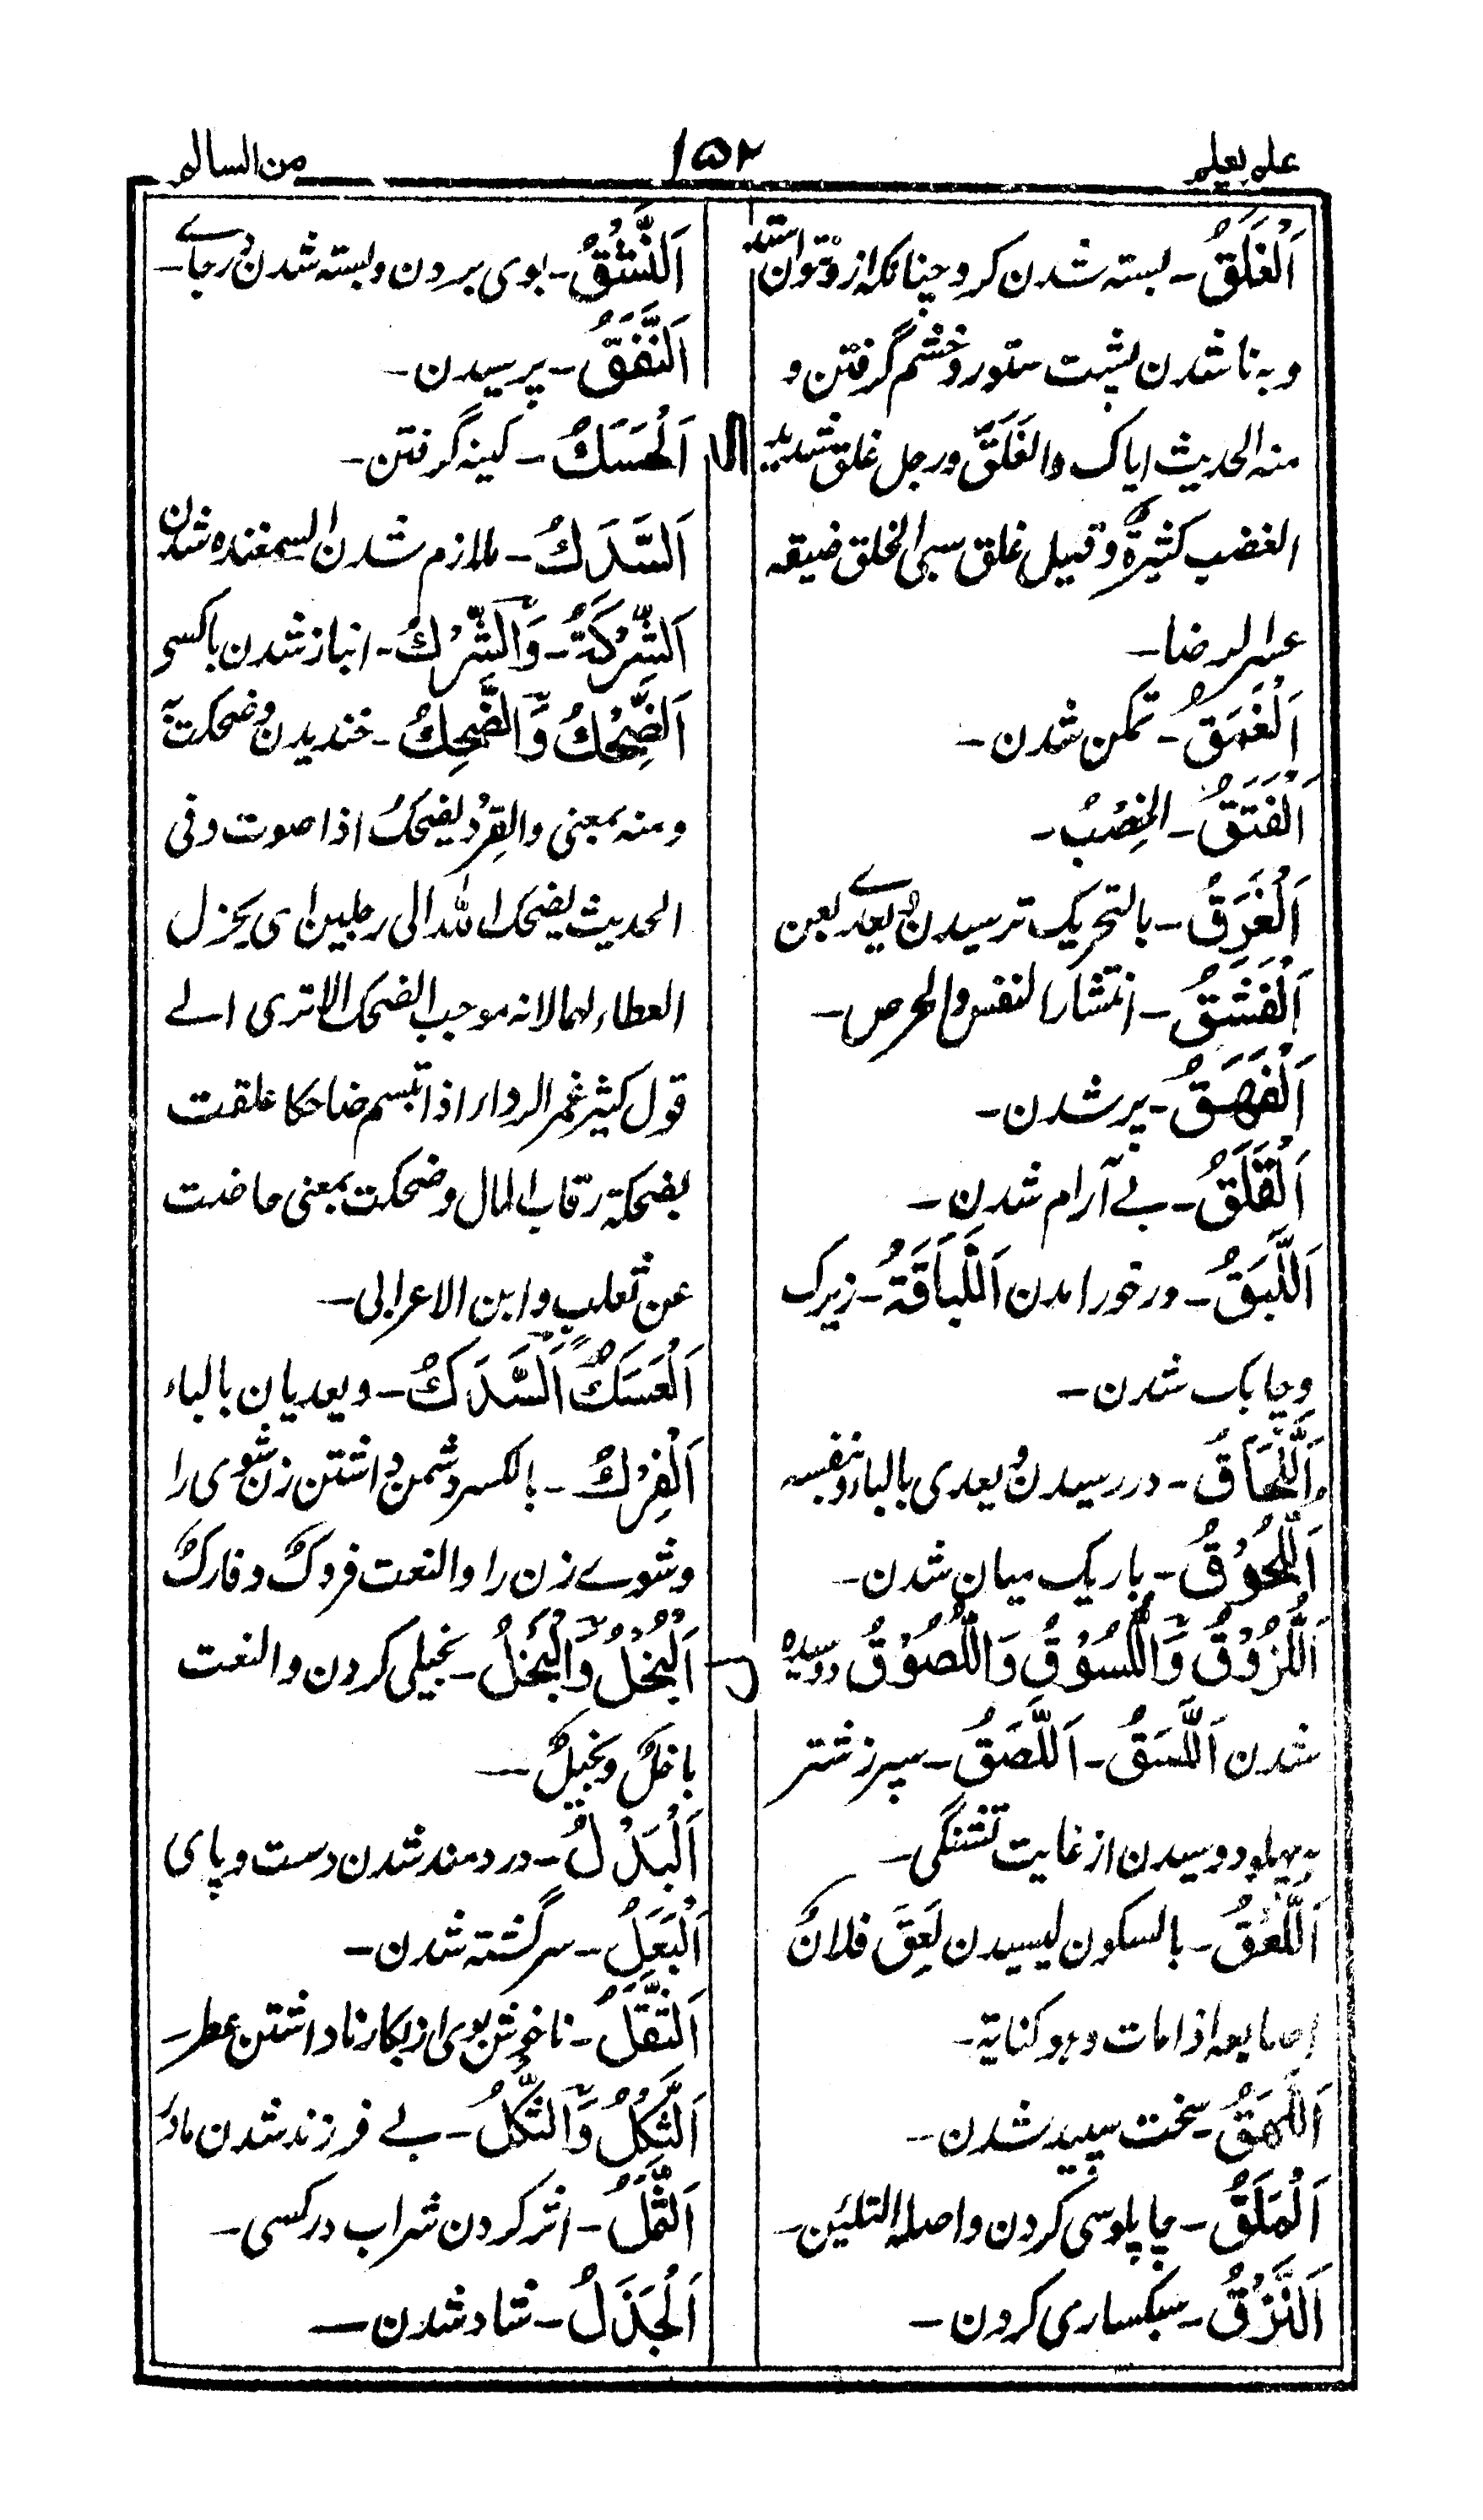 علم یعلم
۱۵۲
من السالم
اَلْغَلَقُ - بسته شدن کرو چنانکه ازو نتوان استد
و به ناشدن پشت ستور و خشم گرفتن و
منه الحدیث ایاک والغَلَقَ و رجل غلق شدید
الغضب کثیرهٗ و قیل غلق سیئ الخلق ضیقه
عسر الرضا -
اَلْغَمَقُ - تمکن شدن -
اَلْفَتَقُ - الخِصْبُ -
اَلْفَرَقُ - بالتحریک ترسیدن و یعدے بعن
اَلْفَشَقُ - انتشار النفس و الحرص -
اَلْفَهَقُ - پر شدن -
اَلْقَلَقُ - بے آرام شدن -
اَللَّبَقُ - درخور امدن اَللَّبَاقَةُ - زیرک
و چابک شدن -
اَللَّحَاقُ - در رسیدن و یعدی بالباء و بنفسه
اَللُّحُوْقُ - باریک میان شدن -
اَللُّزُوْقُ وَاللُّسُوْقُ وَاللُّصُوْقُ دوسیده
شدن اَللَّسَقُ - اَللَّصَقُ - سپرز شتر
به پهلو دوسیدن از غایت تشنگی -
اَللَّعْقُ - بالسکون لیسیدن لَعِقَ فلانٌ
اصابعه اذا مات و هو کنایة -
اَللَّهَقُ - سخت سپید شدن -
اَلْمَلَقُ - چاپلوسی کردن و اصله التلیین -
اَلنَّزَقُ - سبکساری کردن -
اَلنَّشَقُ - بوی بردن و بسته شدن در جاے -
اَلنَّفَقُ - پرسیدن -
ال اَلْحَسَكُ - کینه گرفتن -
اَلسَّدَكُ - ملازم شدن السمغنده شدن
اَلشِّرْكَةُ - وَالشِّرْكُ - انباز شدن باکسی
اَلضِّحْكُ وَالضَّحِكُ - خندیدن و ضحکت به
و منه بمعنی والقِرْدُ یضحکُ اذا صوت و فی
الحدیث یضحک الله الی رجلین ای یجزل
العطاء لهما لانه موجب الضحک الا تری الے
قول کثیر غمر الرداء اذا تبسم ضاحکا غلقت
بضحکته رقاب المال و ضحکت بمعنی حاضت
عن ثعلب و ابن الاعرابی -
اَلْعَسَكُ اَلسَّدَكُ - و یعدیان بالباء
اَلْفِرْكُ - بالکسر دشمن داشتن زن شوی را
و شوے زن را والنعت فروکٌ و فارکٌ
ل اَلْبُخْلُ وَالْبَخَلُ - بخیلی کردن والنعت
باخلٌ و بخیلٌ -
اَلْبَدَلُ - دردمند شدن دست و پای
اَلْبَعَلُ - سرگشته شدن -
اَلتَّفَلُ - ناخوش بوی از بکار ناداشتن عطر -
اَلثَّكَلُ وَالثُّكْلُ - بے فرزند شدن مادر
اَلثَّمَلُ - اثر کردن شراب در کسی -
اَلْجَذَلُ - شاد شدن -